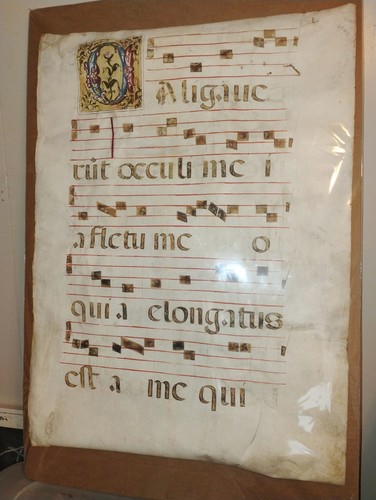 CAligave
rūt occuli me i
a fletu me o
qui a elongatus
est a me qui